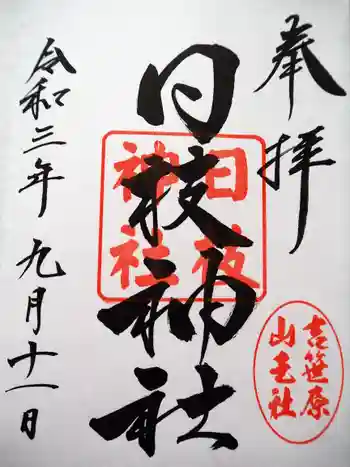 奉拝
日枝神社
日枝
神社
吉笹原
山王社
令和三年九月十一日